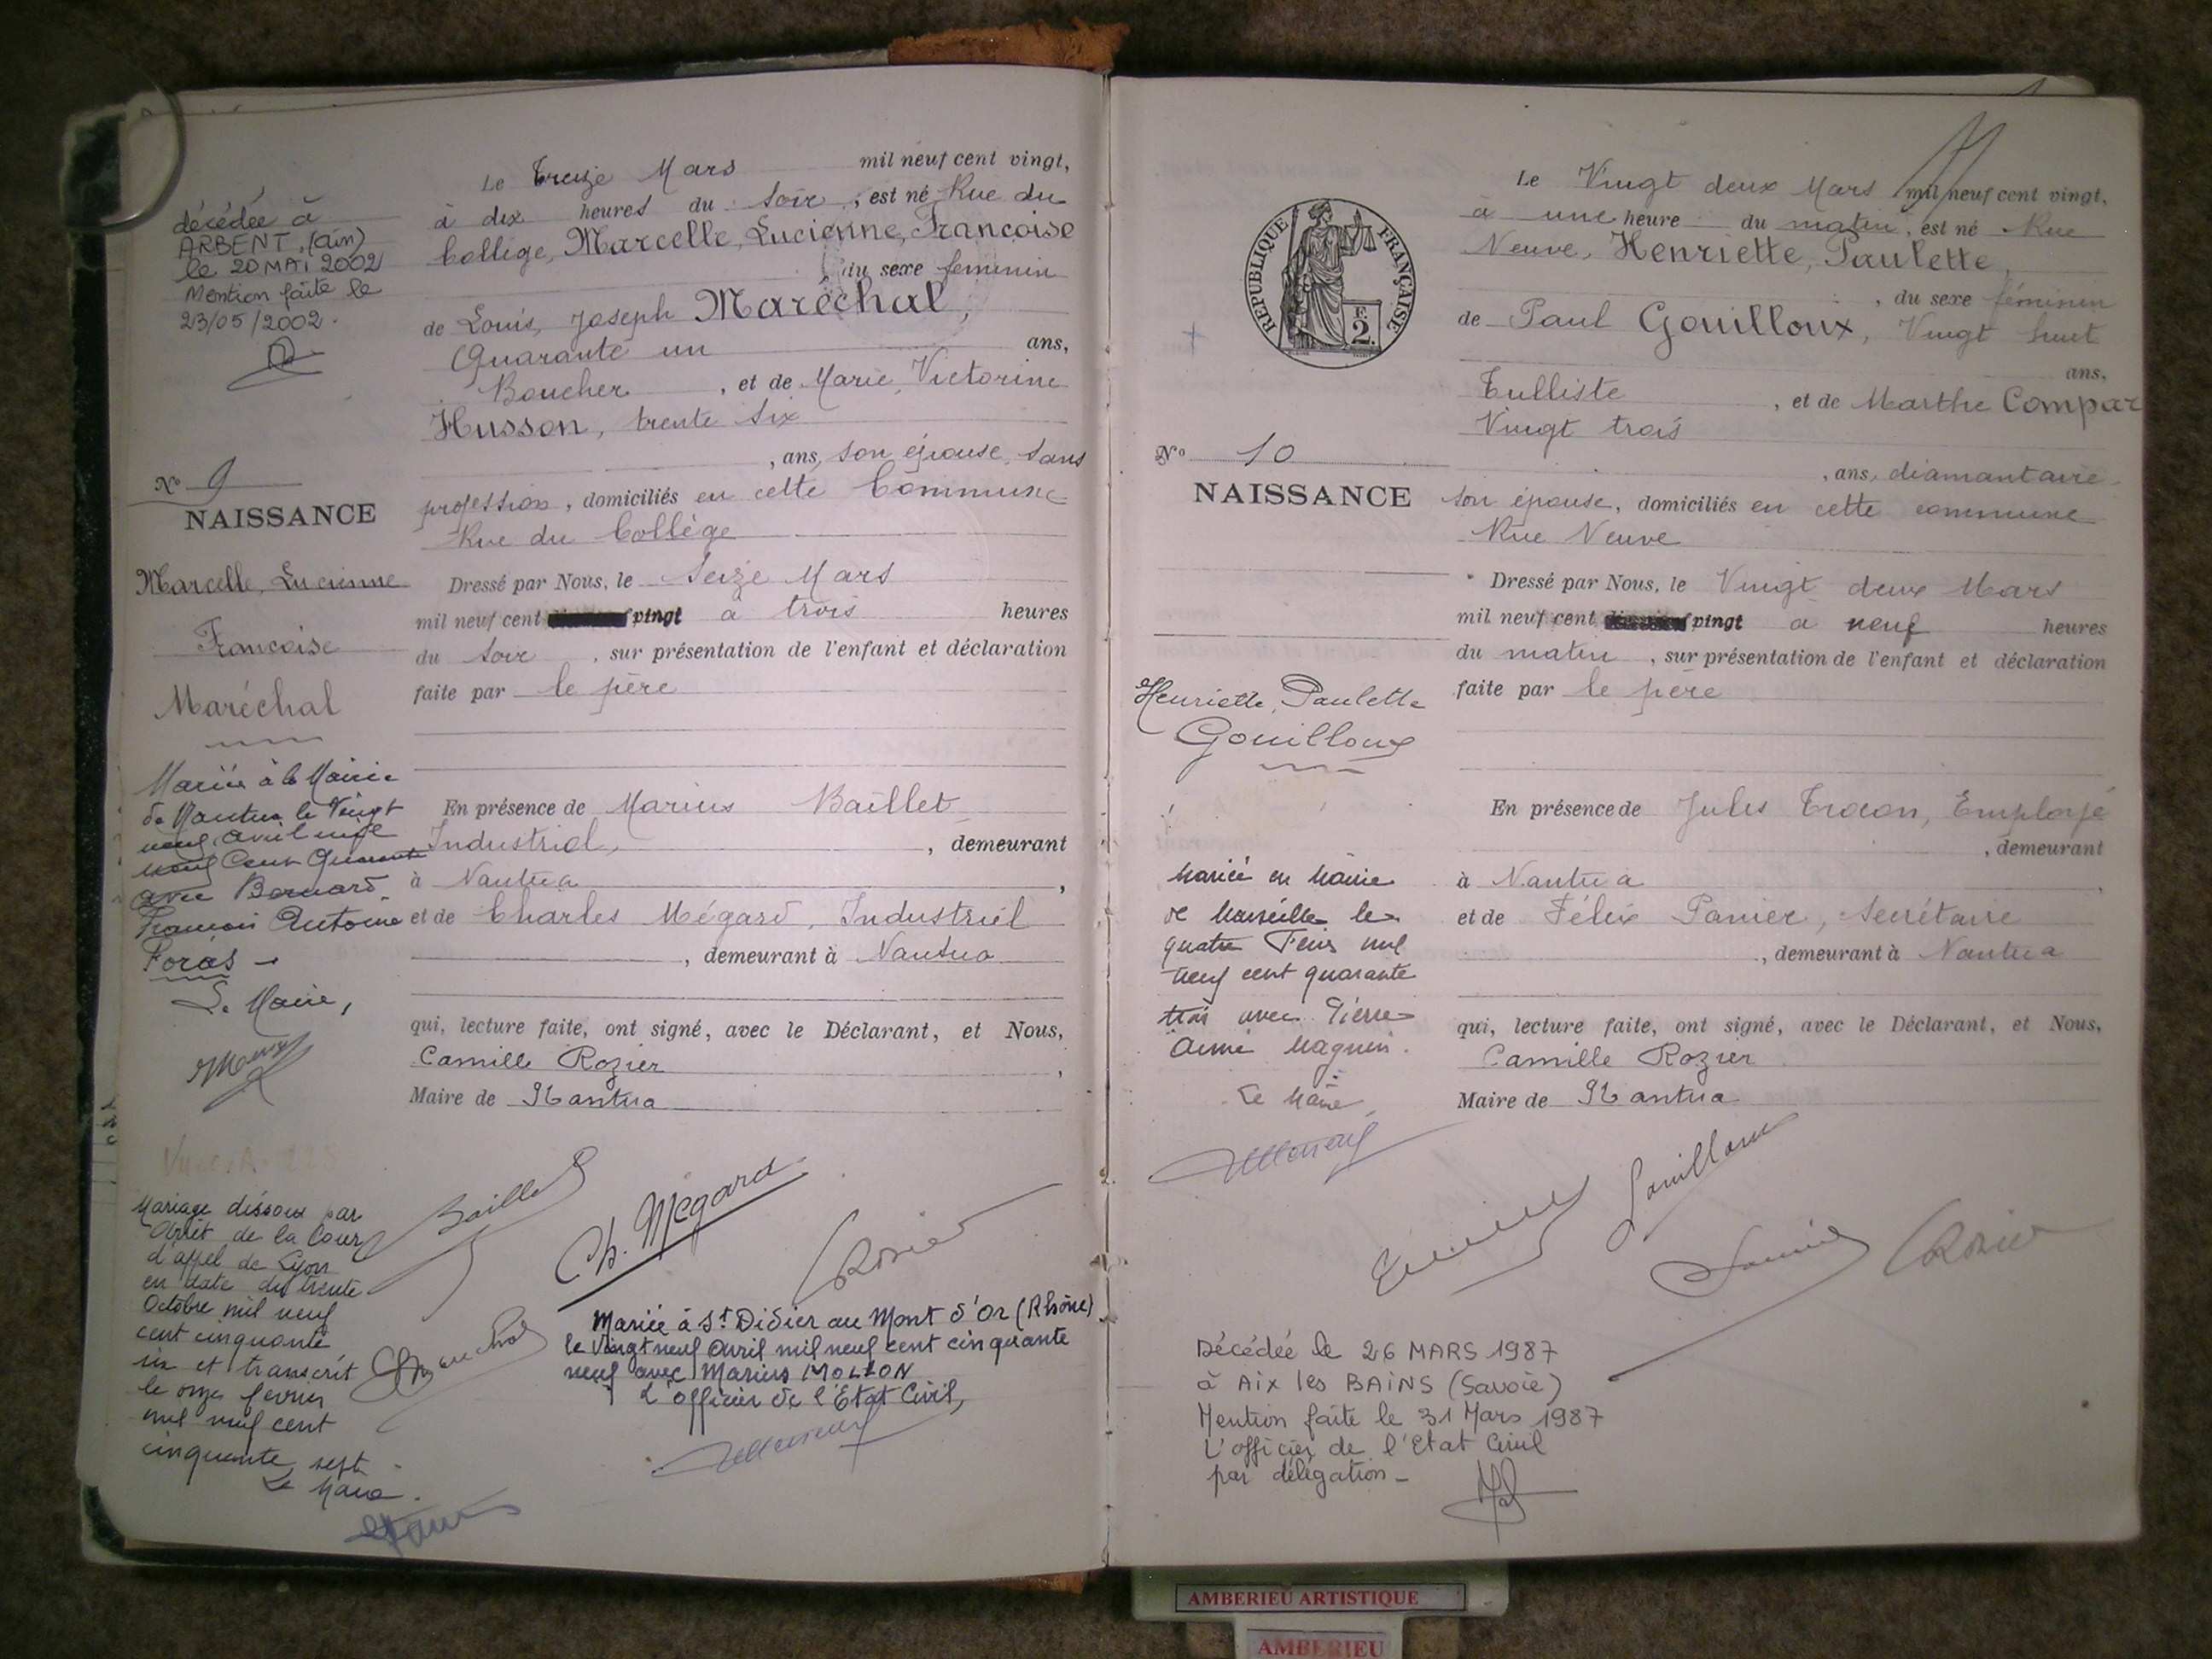 décédée à
ARBENT (ain)
le 20 MAI 2002
Mention faite le
23/05/2002.
No 9
NAISSANCE
Marcelle, Lucienne
Francoise
Maréchal
Mariée à la Mairie
de Nantua le Vingt
neuf avril mil
neuf Cent Quarante
avec Bernard
François Antoine
Foras
Le Maire,
Mariage dissous par
Arrêt de la Cour
d'appel de Lyon
en date du trente
Octobre mil neuf
cent cinquante
six et transcrit
le onze fevrier
mil neuf cent
cinquante sept
Le Maire.
Le Treize Mars mil neuf cent vingt,
à dix heures du soir, est né Rue du
Collège, Marcelle, Lucienne, Francoise
du sexe feminin
de Louis, Joseph Maréchal,
Quarante un ans,
Boucher, et de Marie, Victorine
Husson, trente six
, ans, son épouse, sans
profession, domiciliés en cette Commune
Rue du Collège
Dressé par Nous, le Seize Mars
mil neuf cent vingt à trois heures
du soir, sur présentation de l'enfant et déclaration
faite par le père
En présence de Marius Baillet
Industriel, , demeurant
à Nantua,
et de Charles Mégard, Industriel
, demeurant à Nantua
qui, lecture faite, ont signé, avec le Déclarant, et Nous,
Camille Rozier,
Maire de Nantua
Baillet
Ch. Mégard
CRozier
Mariée à St Didier au Mont d'Or (Rhône)
le vingt neuf avril mil neuf cent cinquante
neuf avec Marius MOLLON
L'officier de l'Etat Civil,
REPUBLIQUE FRANÇAISE
F.
2.
No 10
NAISSANCE
Henriette, Paulette
Gouilloux
Mariée en Mairie
de Marseille le
quatre
mil
neuf cent quarante
trois avec Pierre
Aimé Magnin.
Le Maire,
Le Vingt deux Mars mil neuf cent vingt,
à une heure du matin, est né Rue
Neuve, Henriette, Paulette,
, du sexe féminin
de Paul Gouilloux, Vingt huit
ans,
Tulliste, et de Marthe Compar
Vingt trois
, ans, diamantaire
son épouse, domiciliés en cette commune
Rue Neuve
Dressé par Nous, le Vingt deux Mars
mil neuf cent vingt à neuf heures
du matin, sur présentation de l'enfant et déclaration
faite par le père
En présence de Jules
Employé
, demeurant
à Nantua,
et de Félix Panier, Secrétaire
, demeurant à Nantua
qui, lecture faite, ont signé, avec le Déclarant, et Nous,
Camille Rozier
Maire de Nantua
Gouilloux
CRozier
Décédée le 26 MARS 1987
à AIX les BAINS (Savoie)
Mention faite le 31 Mars 1987
L'officier de l'Etat Civil
par délégation -
AMBERIEU ARTISTIQUE
AMBERIEU